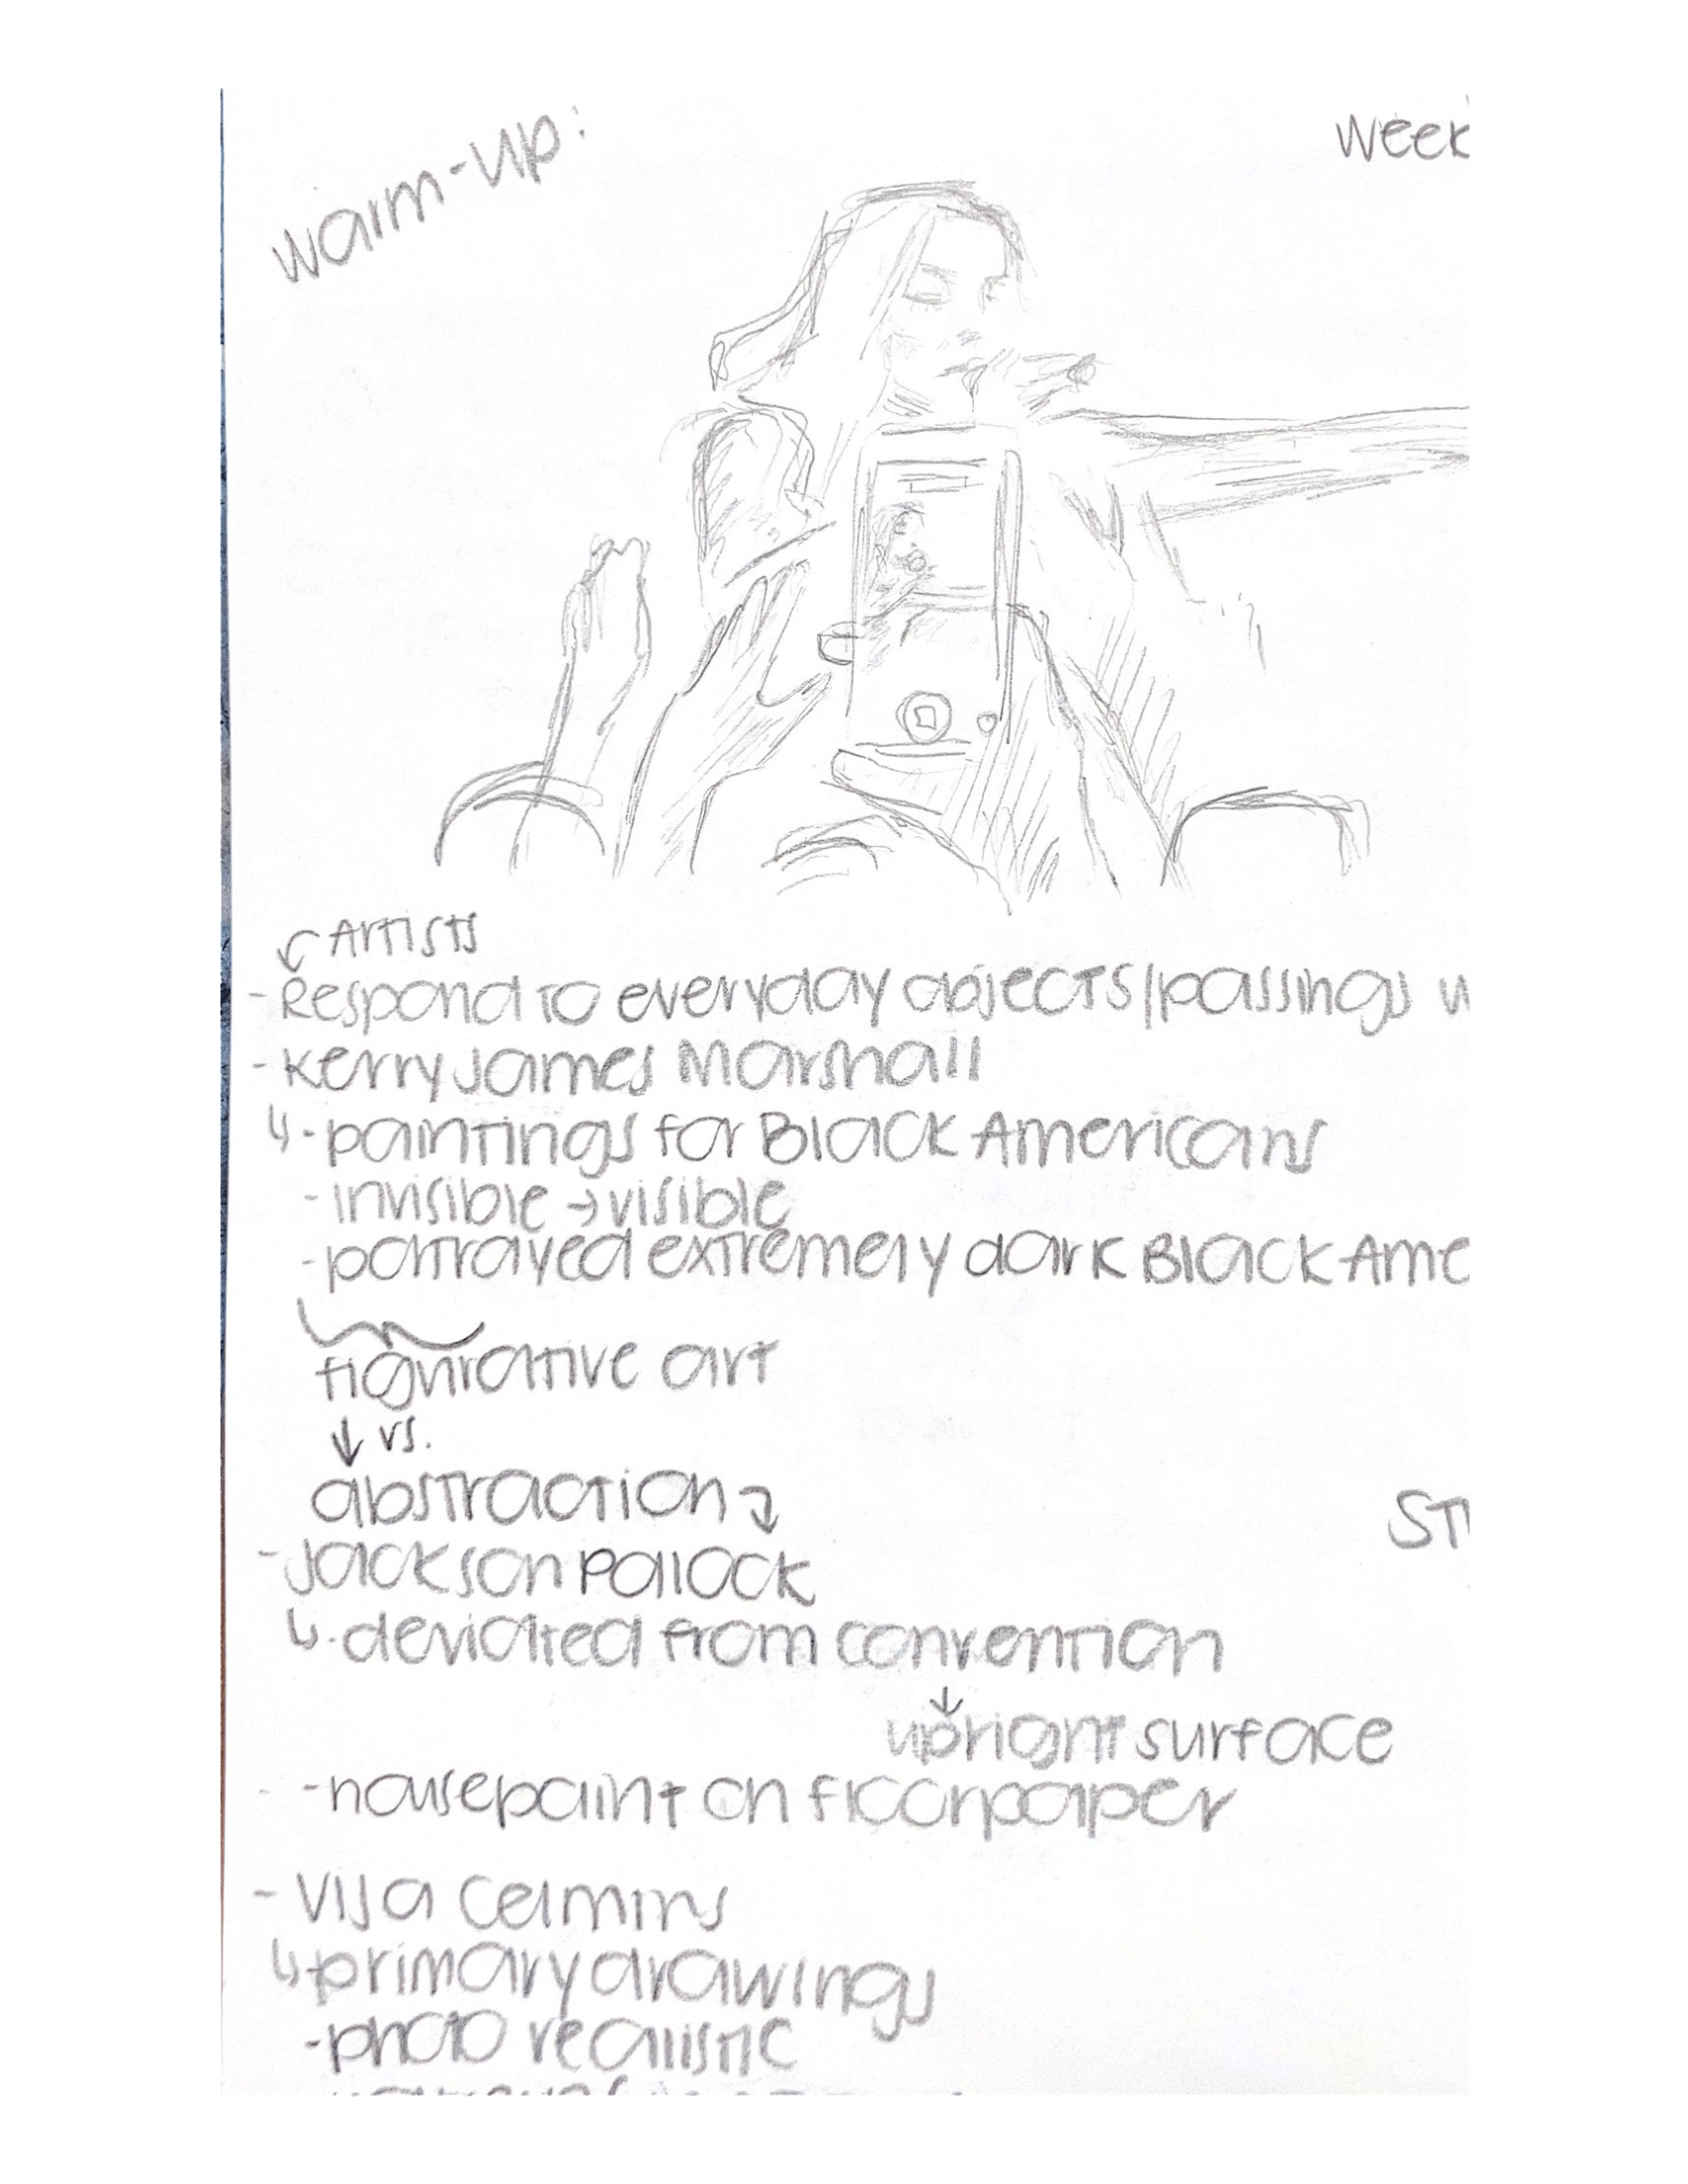 warm-up:
Week
Artists
- Respond to everyday objects/passings
- Kerry James Marshall
↳ - paintings for Black Americans
- invisible → visible
- portrayed extremely dark Black Ame
figurative art
↓ vs.
abstraction
- Jackson Pollock
↳ - deviated from convention
↓
upright surface
- housepaint on floor paper
- Vija Celmins
↳ - primary drawings
- photo realistic